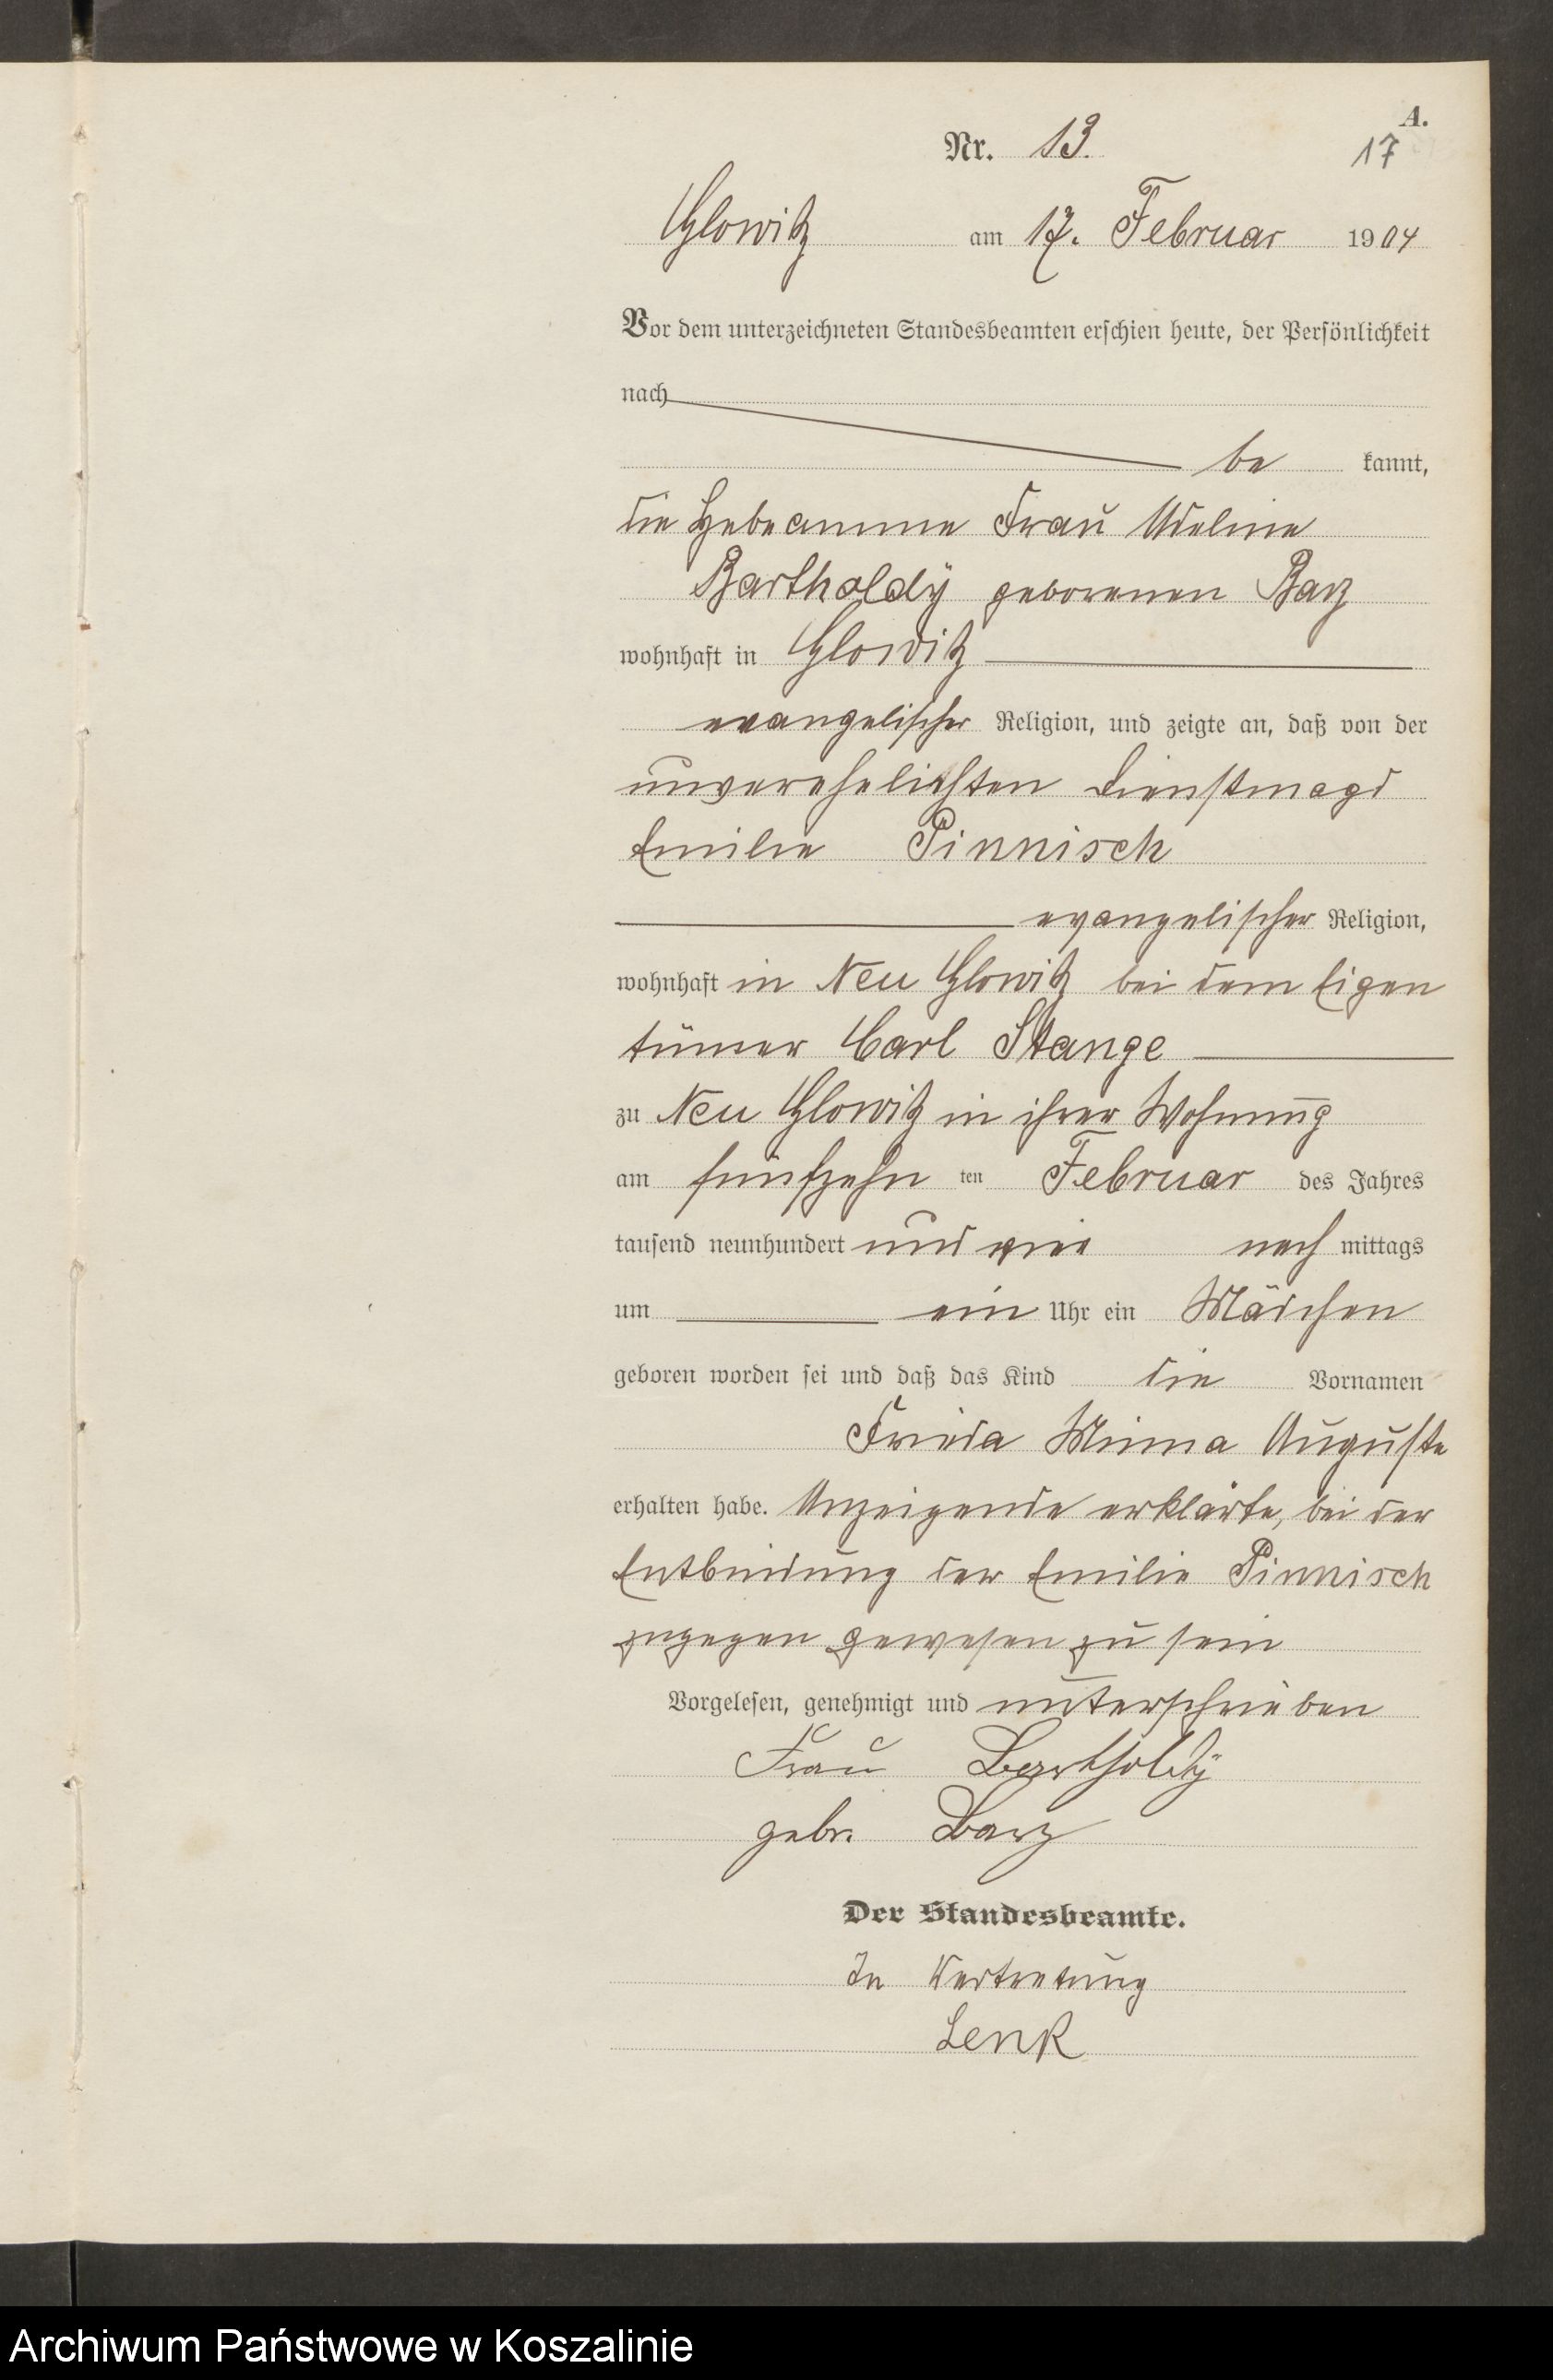 A.
Nr. 13.
17
Glowitz am 17. Februar 1904
Vor dem unterzeichneten Standesbeamten erschien heute, der Persönlichkeit
nach
be kannt,
die Hebeamme Frau Adeline
Bartholdÿ geborenen Barz
wohnhaft in Glowitz
evangelischer Religion, und zeigte an, daß von der
unverehelichten Dienstmagd
Emilie Pinnisch
evangelischer Religion,
wohnhaft in Neu Glowitz bei dem Eigen
tümer Carl Stange
zu Neu Glowitz in ihrer Wohnung
am fünfzehn ten Februar des Jahres
tausend neunhundert und vier nach mittags
um ein Uhr ein Mädchen
geboren worden sei und daß das Kind die Vornamen
Frieda Minna Auguste
erhalten habe. Anzeigende erklärte, bei der
Entbindung der Emilie Pinnisch
zugegen gewesen zu sein
Vorgelesen, genehmigt und unterschrieben
Frau Bartholdÿ
gebr. Barz
Der Standesbeamte.
In Vertretung
Lenk
Archiwum Państwowe w Koszalinie